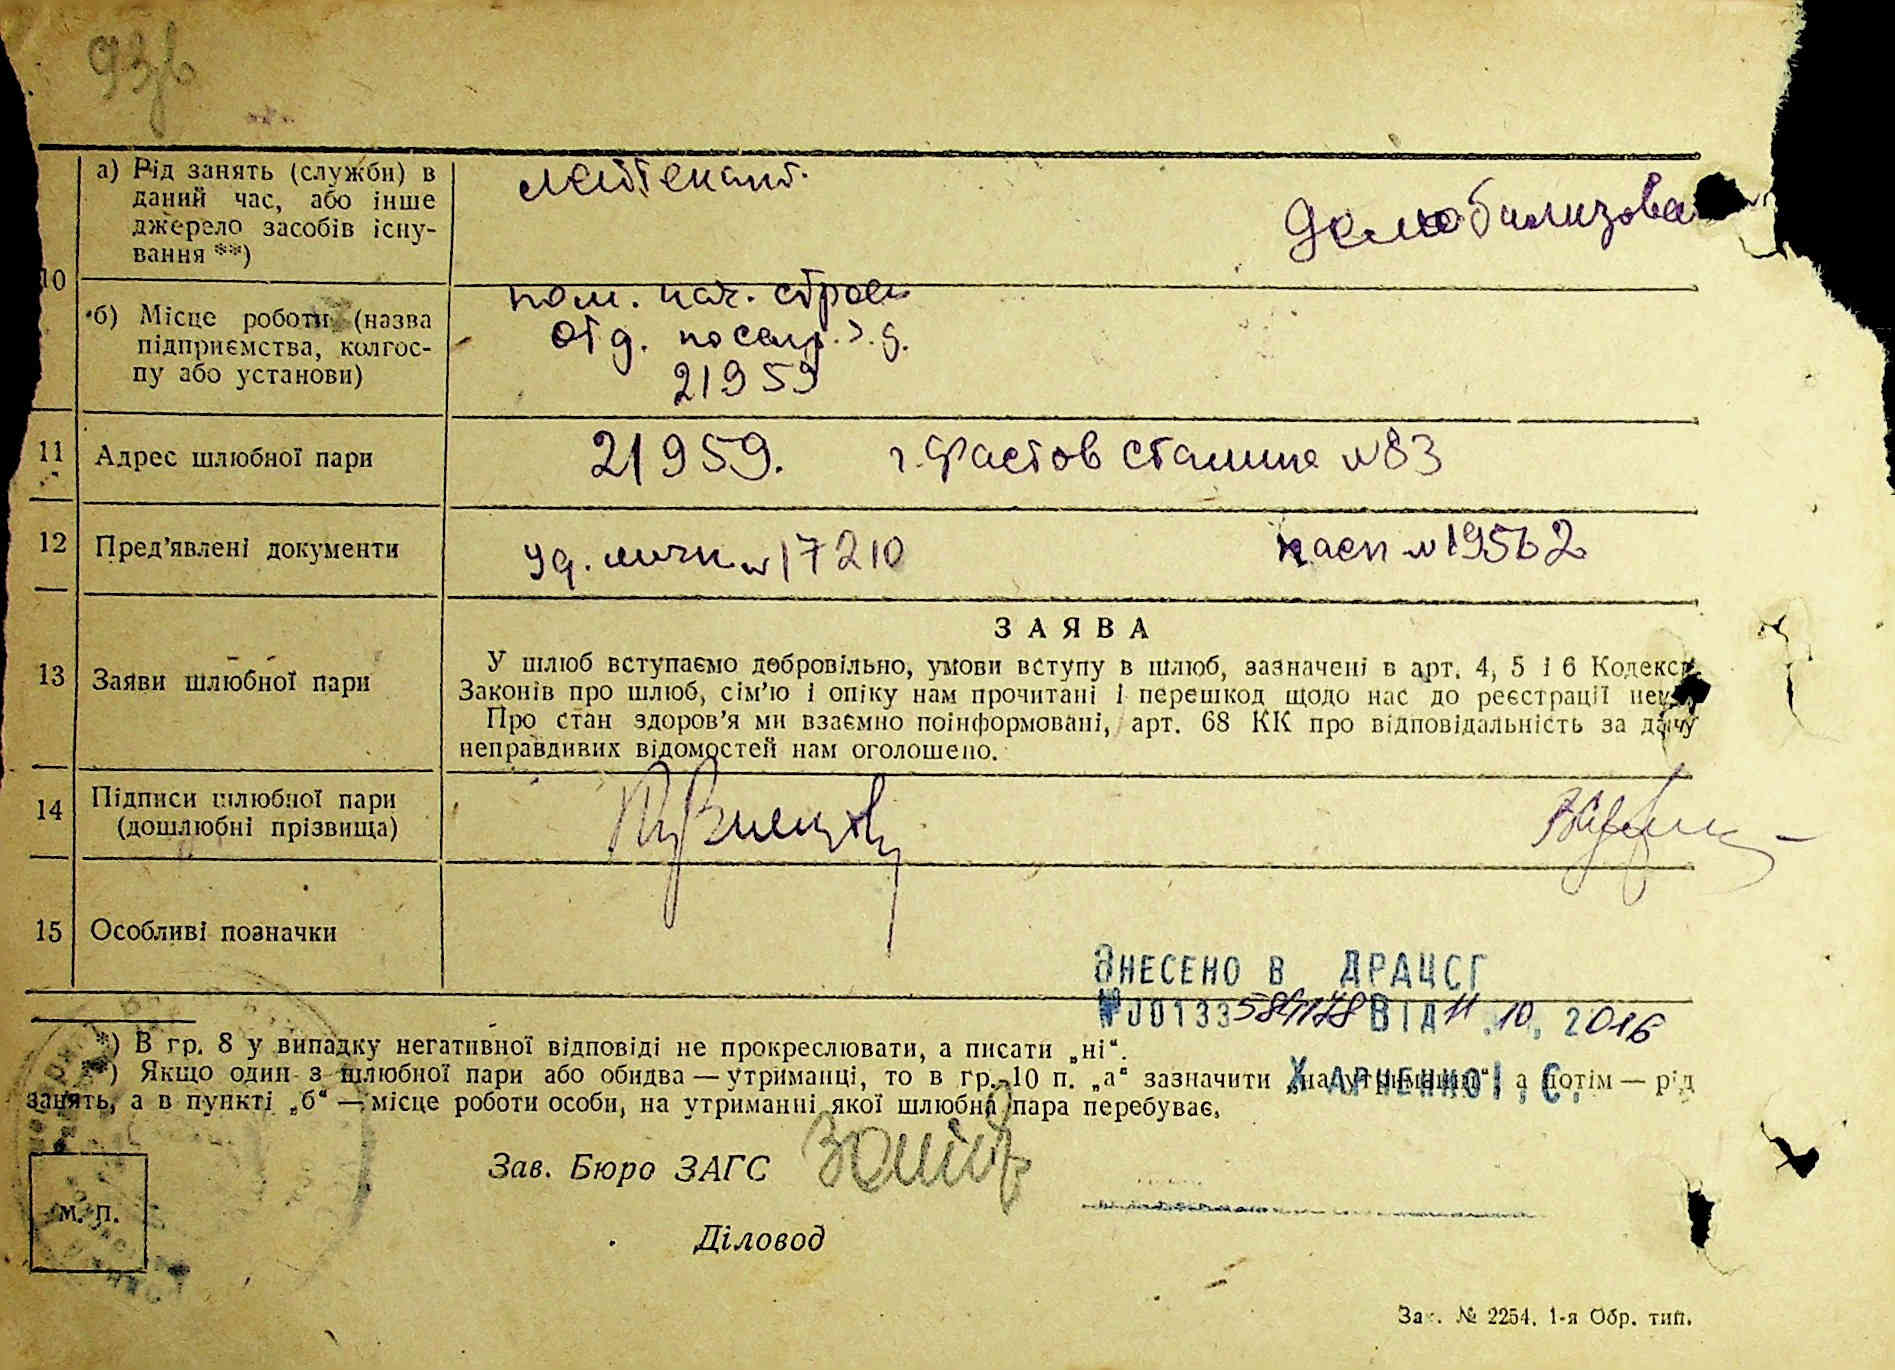 93
10
а) Рід занять (служби) в
даний час, або інше
джерело засобів існу-
вання **)
лейтенант.
демобилизова
б) Місце роботи (назва
підприємства, колгос-
пу або установи)
пом. нач. строев
отд.
21959
11 Адрес шлюбної пари 21959. г. Фастов Сталина №83
12 Пред'явлені документи уд. личн. № 17210 пасп №19562
ЗАЯВА
13 Заяви шлюбної пари
У шлюб вступаємо добровільно, умови вступу в шлюб, зазначені в арт. 4, 5 і 6 Кодекса
Законів про шлюб, сім'ю і опіку нам прочитані і перешкод щодо нас до реєстрації нема.
Про стан здоров'я ми взаємно поінформовані, арт. 68 КК про відповідальність за дачу
неправдивих відомостей нам оголошено.
14 Підписи шлюбної пари
(дошлюбні прізвища)
15 Особливі позначки
ВНЕСЕНО В ДРАЦСГ
№00133584178 ВІД 11.10.2016
*) В гр. 8 у випадку негативної відповіді не прокреслювати, а писати „ні“.
**) Якщо один з шлюбної пари або обидва — утриманці, то в гр. 10 п. „а“ зазначити „на утриманні“, а потім — рід
занять, а в пункті „б“ — місце роботи особи, на утриманні якої шлюбна пара перебуває.
ХАРЧЕНКО І. С.
Зав. Бюро ЗАГС
м. п.
Діловод
Зак. № 2254. 1-я Обр. тип.